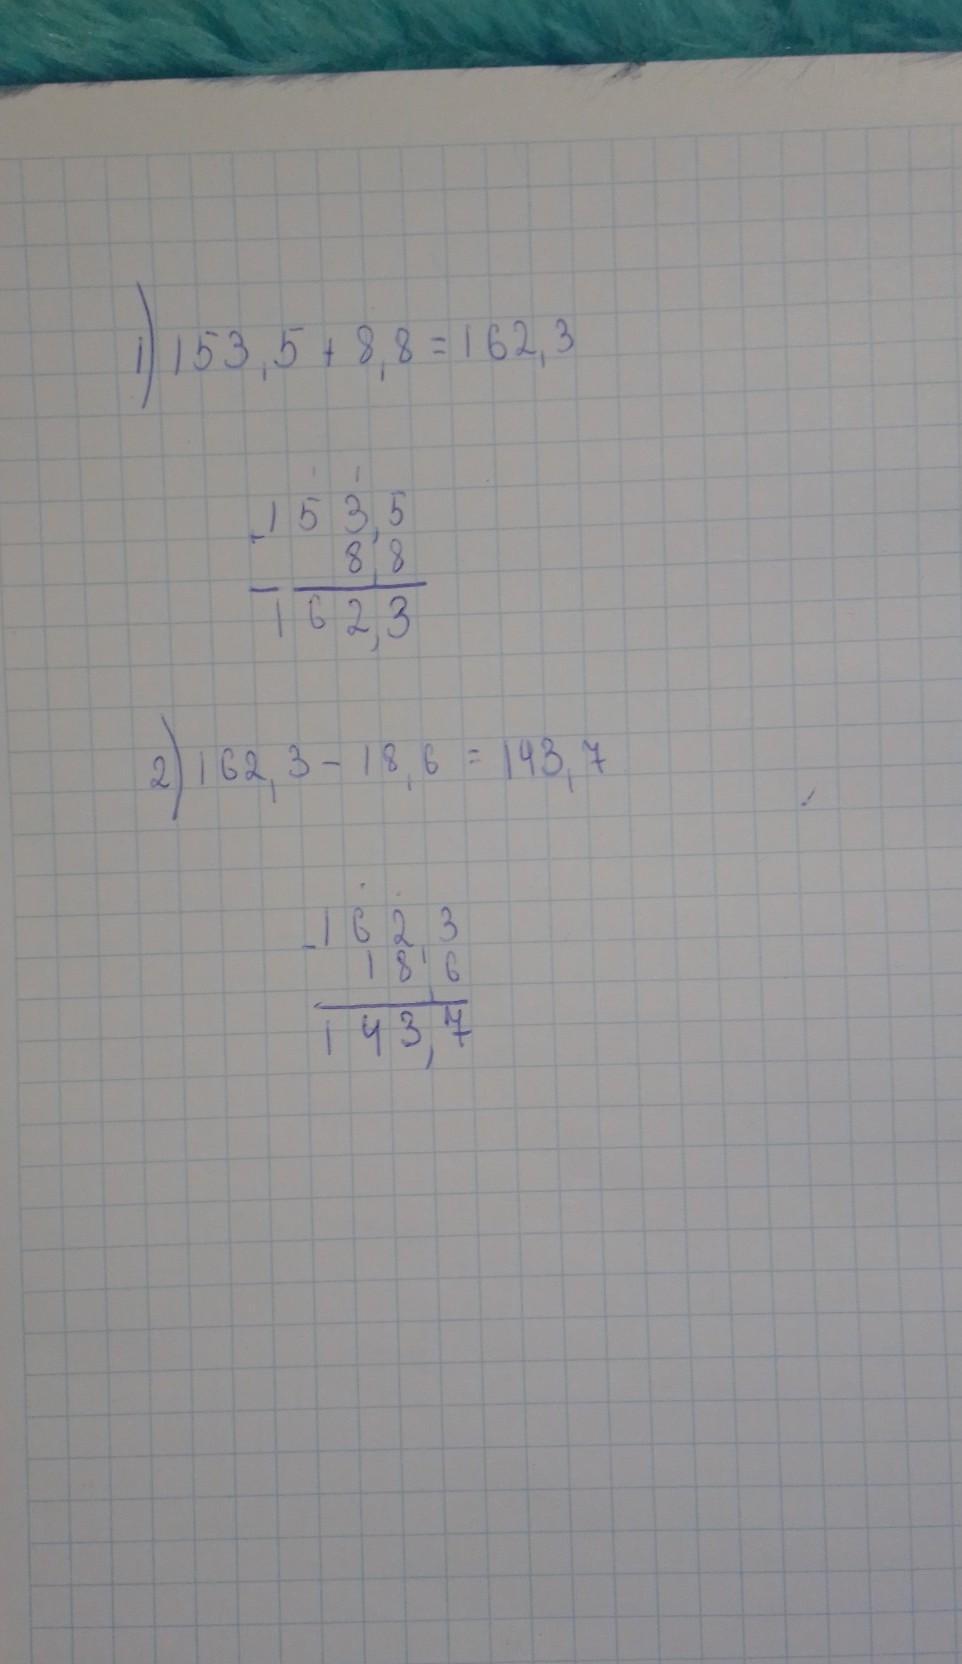 1) 153,5 + 8,8 = 162,3
1 1
- 153,5
8,8
162,3
2) 162,3 - 18,6 = 143,7
. .
- 162,3
18,6
143,7